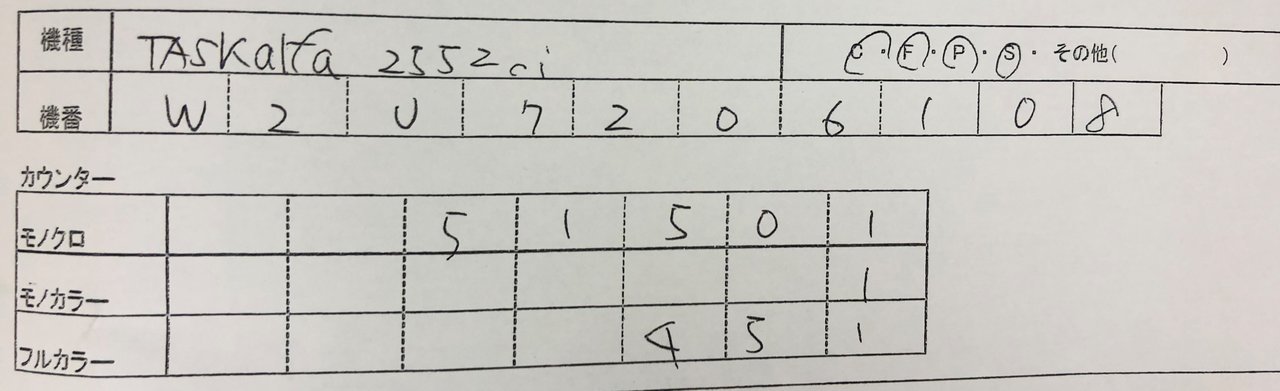 機種 TASKalfa 2552ci C・F・P・S・その他( )
機番 W 2 U 7 2 0 6 1 0 8
カウンター
モノクロ 5 1 5 0 1
モノカラー 1
フルカラー 4 5 1